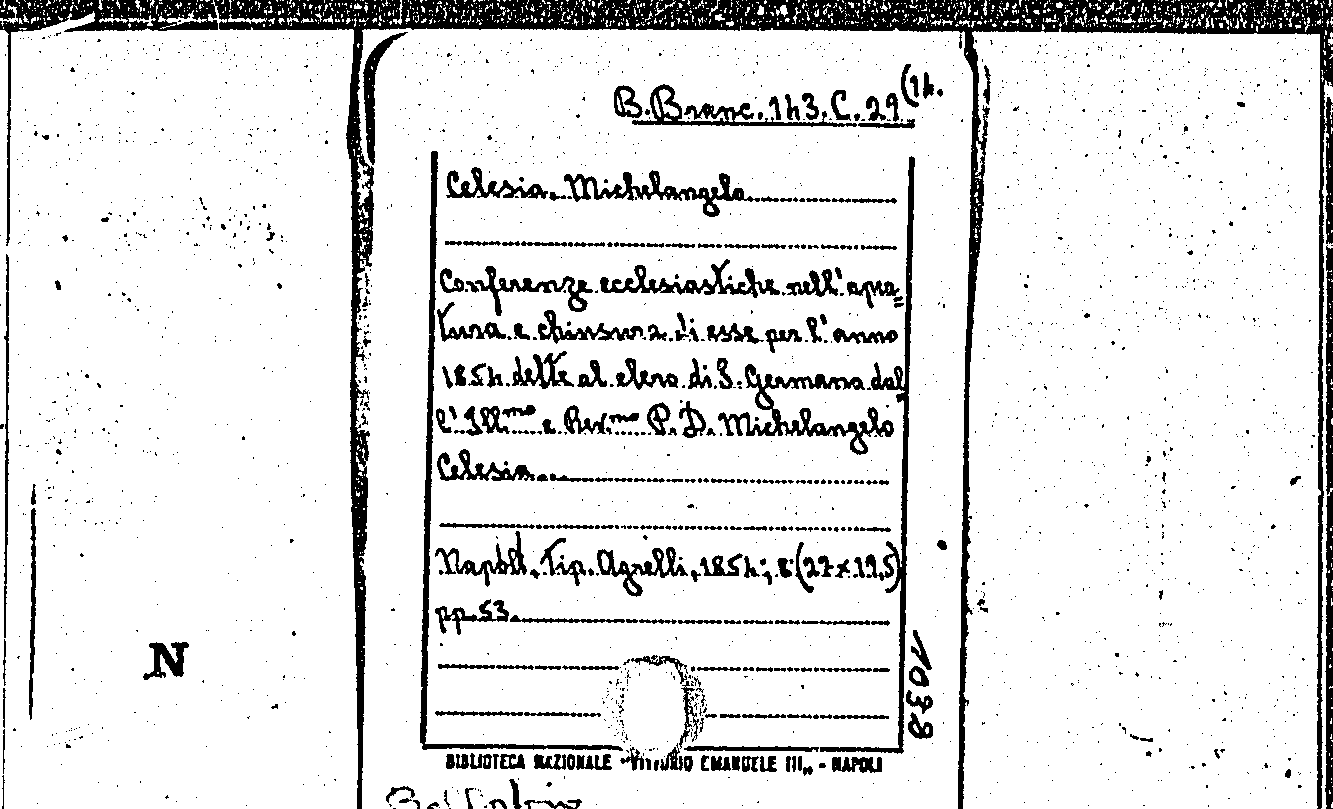 B. Branc. 143. C. 29 (14.
Celesia. Michelangelo
Conferenze ecclesiastiche nell' apra=
tura e chiusura di esse per l' anno
1854 dette al clero di S. Germano dal
l' Ill.mo e Rev.mo P. D. Michelangelo
Celesia
Napoli, Tip. Agrelli, 1854; 8 (27 x 19,5)
pp. 53.
1038
N
BIBLIOTECA NAZIONALE "VITTORIO EMANUELE III„ - NAPOLI